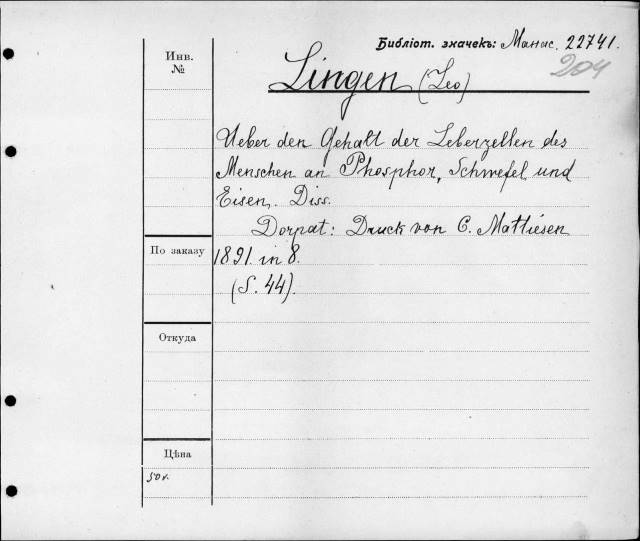 Библіот. значекъ: Манас. 22741.
204
Инв.
№
Lingen (Leo)
Ueber den Gehalt der Leberzellen des
Menschen an Phosphor, Schwefel und
Eisen. Diss.
Dorpat: Druck von C. Mattiesen
По заказу
1891. in 8.
(S. 44).
Откуда
Цѣна
50 к.